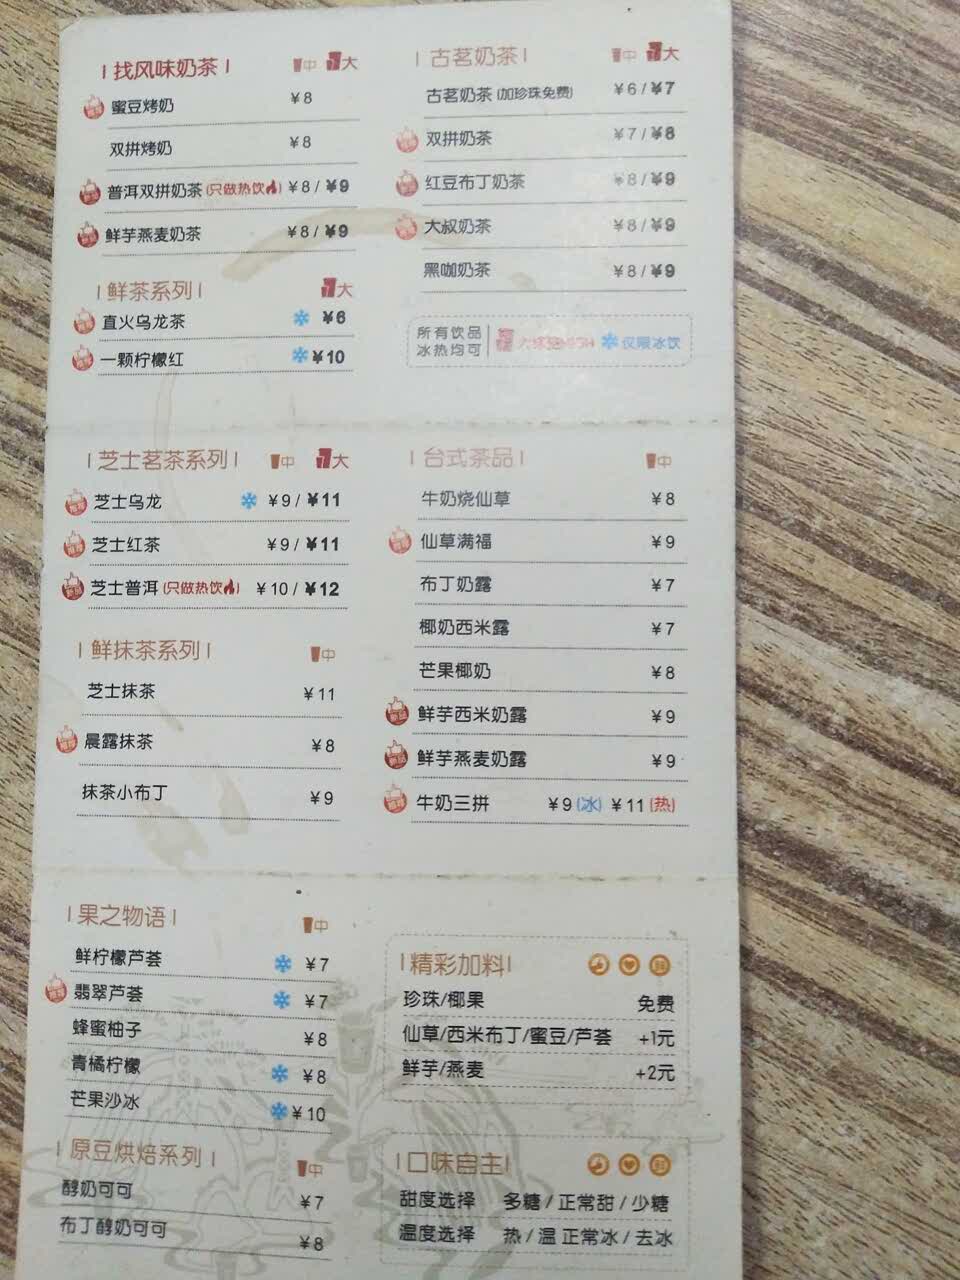 找风味奶茶 中 大
推荐 蜜豆烤奶 ¥8
双拼烤奶 ¥8
新品 普洱双拼奶茶(只做热饮) ¥8/¥9
新品 鲜芋燕麦奶茶 ¥8/¥9
鲜茶系列 大
推荐 直火乌龙茶 ¥6
推荐 一颗柠檬红 ¥10
古茗奶茶 中 大
古茗奶茶(加珍珠免费) ¥6/¥7
推荐 双拼奶茶 ¥7/¥8
推荐 红豆布丁奶茶 ¥8/¥9
推荐 大叔奶茶 ¥8/¥9
黑咖奶茶 ¥8/¥9
所有饮品
冰热均可
仅限冰饮
芝士茗茶系列 中 大
推荐 芝士乌龙 ¥9/¥11
推荐 芝士红茶 ¥9/¥11
新品 芝士普洱(只做热饮) ¥10/¥12
鲜抹茶系列 中
芝士抹茶 ¥11
推荐 晨露抹茶 ¥8
抹茶小布丁 ¥9
台式茶品 中
牛奶烧仙草 ¥8
推荐 仙草满福 ¥9
布丁奶露 ¥7
椰奶西米露 ¥7
芒果椰奶 ¥8
新品 鲜芋西米奶露 ¥9
新品 鲜芋燕麦奶露 ¥9
推荐 牛奶三拼 ¥9(冰) ¥11(热)
果之物语 中
鲜柠檬芦荟 ¥7
推荐 翡翠芦荟 ¥7
蜂蜜柚子 ¥8
青橘柠檬 ¥8
芒果沙冰 ¥10
原豆烘焙系列 中
醇奶可可 ¥7
布丁醇奶可可 ¥8
精彩加料
珍珠/椰果 免费
仙草/西米布丁/蜜豆/芦荟 +1元
鲜芋/燕麦 +2元
口味自主
甜度选择 多糖/正常甜/少糖
温度选择 热/温 正常冰/去冰